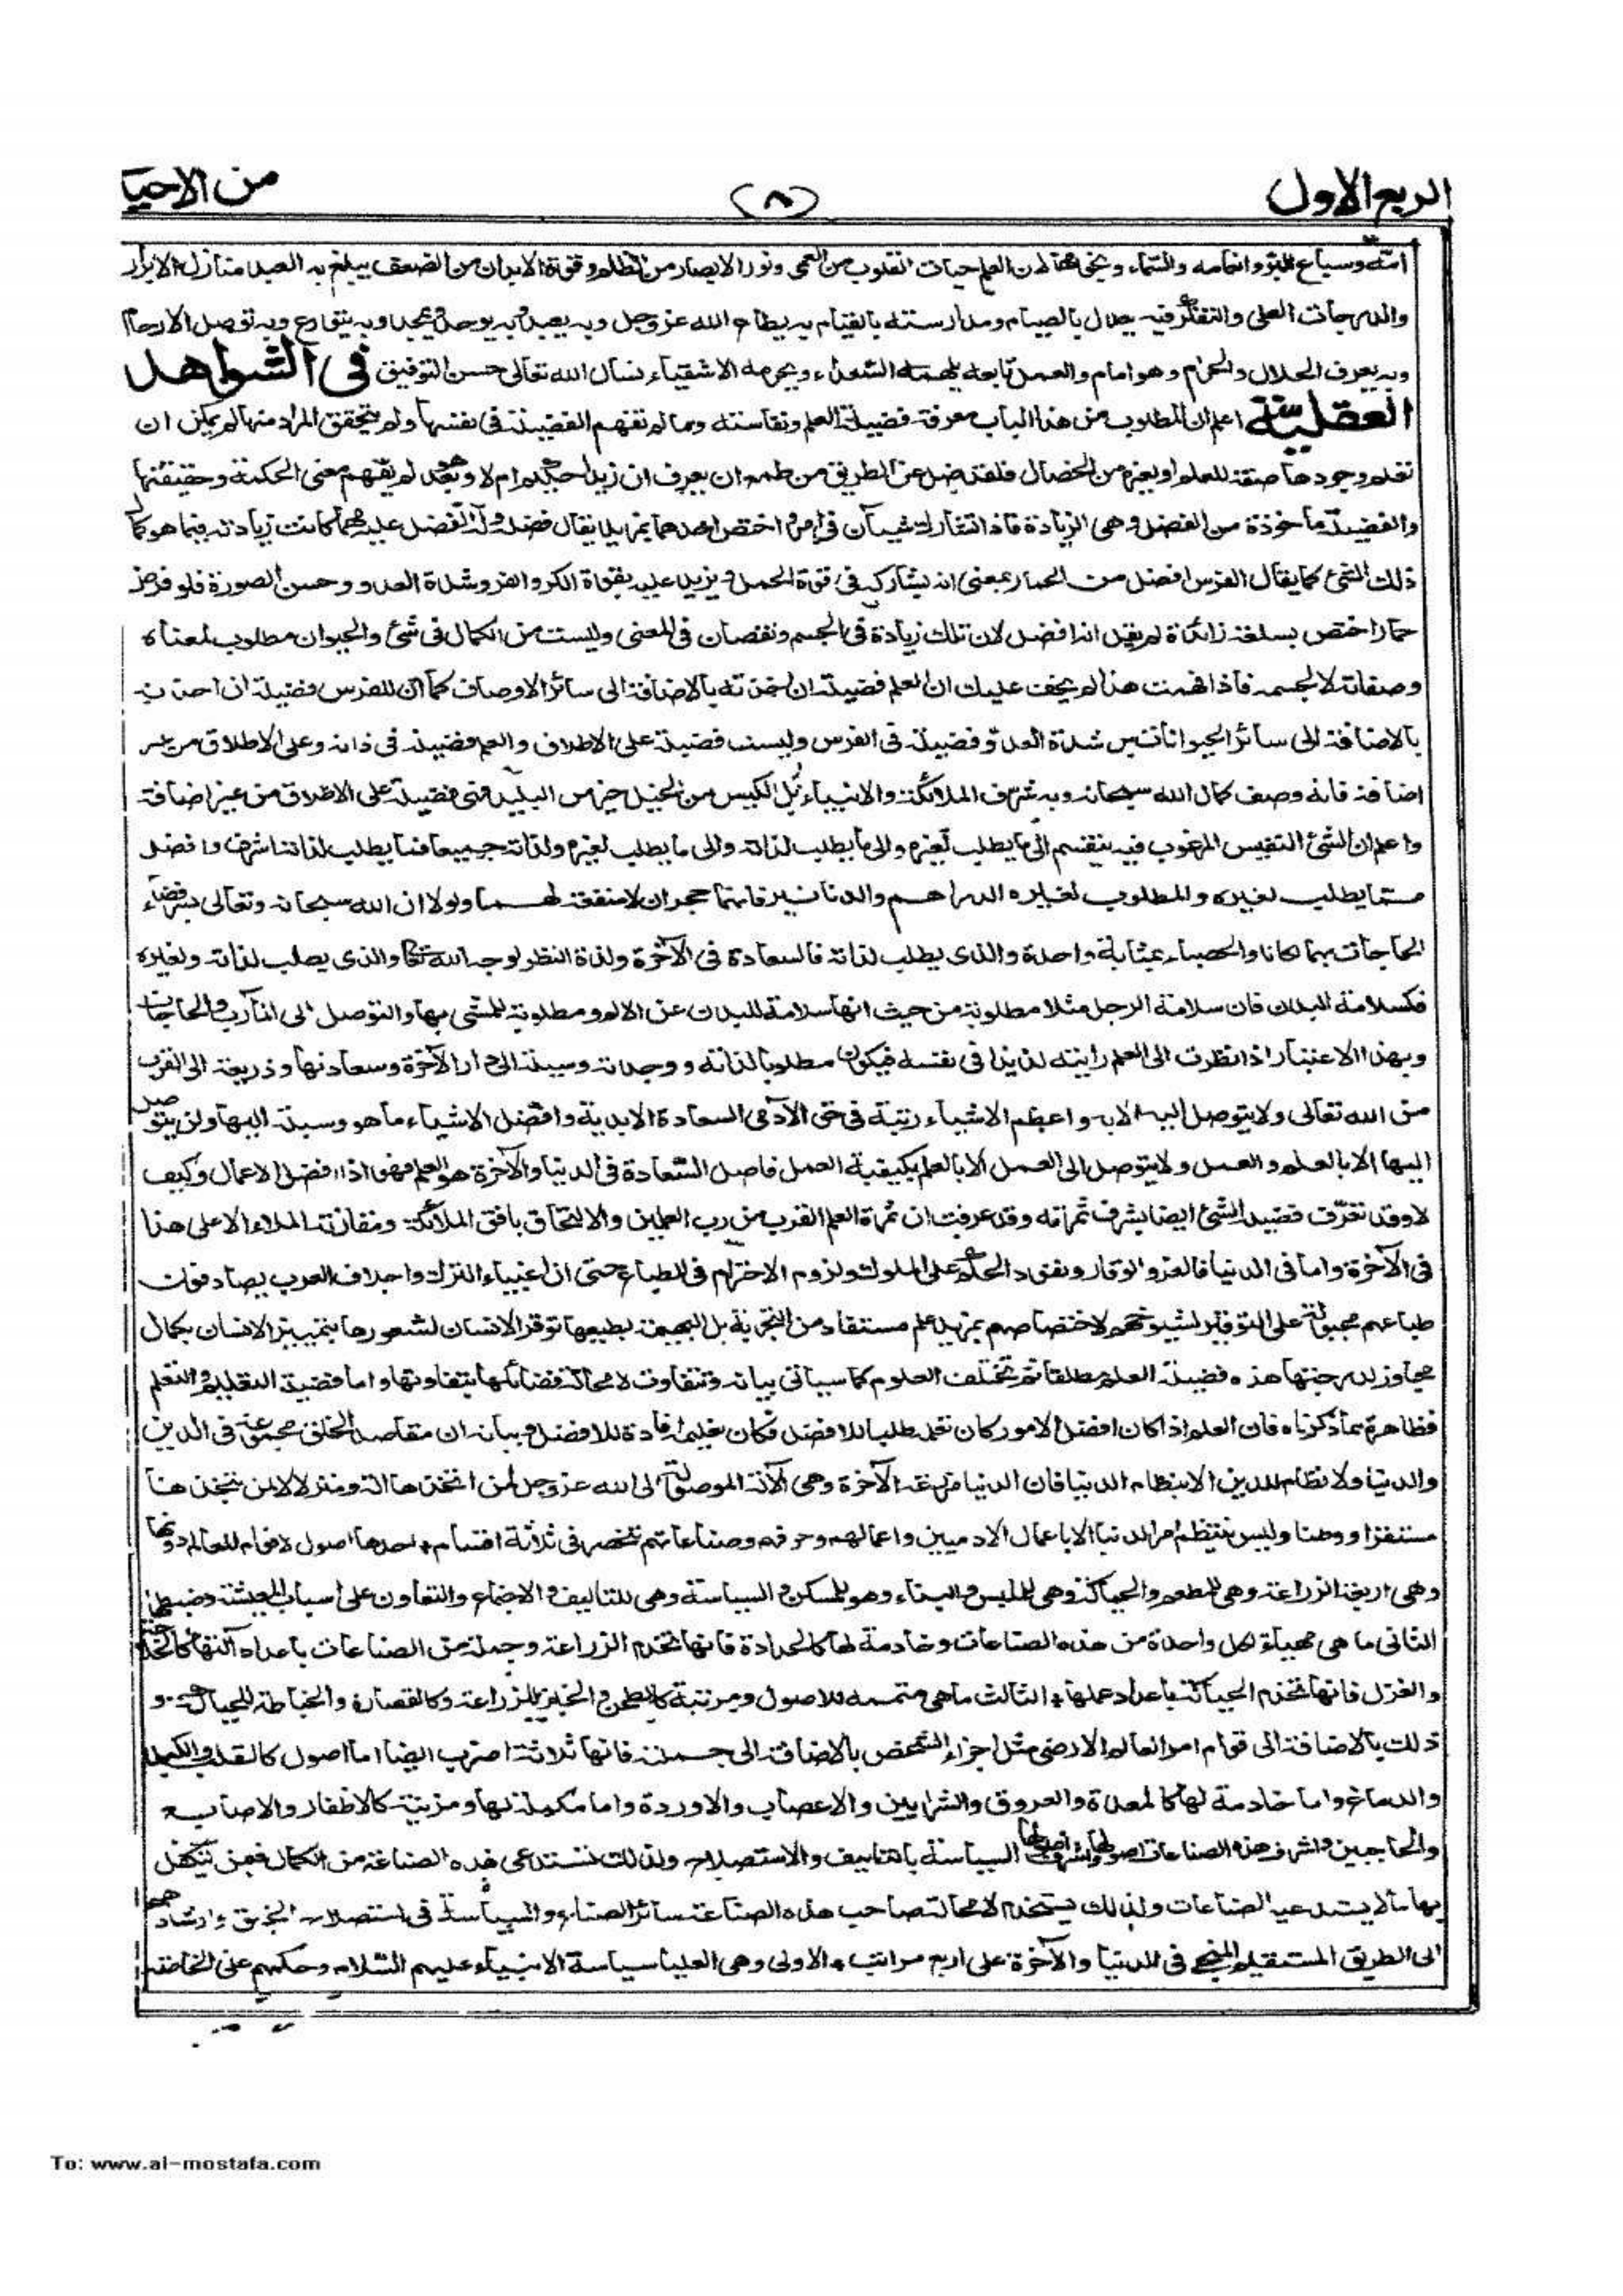 الربع الاول
(٨)
من الاحيا
وسباع البر وانعامه والسماء و لان العلم حيات القلوب من العمى ونور الابصار من الظلم وقوة الابدان من الضعف يبلغ به العبد منازل الابرار
والدرجات العلى والتفكر فيه يعدل بالصيام ومدارسته بالقيام به يطاع الله عز وجل وبه يعبد وبه يوحد وبه يمجد وبه يتورع وبه توصل الارحام
وبه يعرف الحلال والحرام وهو امام والعمل تابعه يلهمه السعداء ويحرمه الاشقياء نسأل الله تعالى حسن التوفيق في الشواهد
العقلية اعلم ان المطلوب من هذا الباب معرفة فضيلة العلم ونفاسته وما لم تفهم الفضيلة في نفسها ولم يتحقق المراد منها لم يمكن ان
تعلم وجودها صفة للعلم او لغيره من الخصال فلقد ضل عن الطريق من طمع ان يعرف ان زيدا حكيم ام لا وهو بعد لم يفهم معنى الحكمة وحقيقتها
والفضيلة مأخوذة من الفضل وهى الزيادة فاذا تشارك شيآن في امر واختص احدهما بمزيد يقال فضله وله الفضل عليه مهما كانت زيادته فيما هو كمال
ذلك الشئ كما يقال الفرس افضل من الحمار بمعنى انه يشاركه في قوة الحمل ويزيد عليه بقوة الكر والفر وشدة العدو وحسن الصورة فلو فرض
حمارا اختص بسلعة زائدة لم يقل انه افضل لان تلك زيادة في الجسم ونقصان في المعنى وليست من الكمال في شئ والحيوان مطلوب لمعناه
وصفاته لا لجسمه فاذا فهمت هذا لم يخف عليك ان العلم فضيلة ان اخذته بالاضافة الى سائر الاوصاف كما ان للفرس فضيلة ان اخذته
بالاضافة الى سائر الحيوانات بل شدة العدو فضيلة في الفرس وليست فضيلة على الاطلاق والعلم فضيلة في ذاته وعلى الاطلاق من غير
اضافة فانه وصف كمال الله سبحانه وبه شرف الملائكة والانبياء بل الكيس من الخيل خير من البليد فهى فضيلة على الاطلاق من غير اضافة
واعلم ان الشئ النفيس المرغوب فيه ينقسم الى ما يطلب لغيره والى ما يطلب لذاته والى ما يطلب لغيره ولذاته جميعا فما يطلب لذاته اشرف وافضل
مما يطلب لغيره والمطلوب لغيره الدراهم والدنانير فانهما حجران لا منفعة لهما ولولا ان الله سبحانه وتعالى يسر قضاء
الحاجات بهما لكانا والحصباء بمثابة واحدة والذى يطلب لذاته فالسعادة في الآخرة ولذة النظر لوجه الله تعالى والذى يطلب لذاته ولغيره
فكسلامة البدن فان سلامة الرجل مثلا مطلوبة من حيث انها سلامة للبدن عن الالم ومطلوبة للمشى بها والتوصل الى المآرب والحاجات
وبهذا الاعتبار اذا نظرت الى العلم رايته لذيذا في نفسه فيكون مطلوبا لذاته ووجدته وسيلة الى دار الآخرة وسعادتها وذريعة الى القرب
من الله تعالى ولا يتوصل اليه الا به واعظم الاشياء رتبة في حق الآدمى السعادة الابدية وافضل الاشياء ما هو وسيلة اليها ولن يتوصل
اليها الا بالعلم والعمل ولا يتوصل الى العمل الا بالعلم بكيفية العمل فاصل السعادة في الدنيا والآخرة هو العلم فهو اذا افضل الاعمال وكيف
لا وقد تعرف فضيلة الشئ ايضا بشرف ثمرته وقد عرفت ان ثمرة العلم القرب من رب العلمين والالتحاق بافق الملائكة ومقارنة الملاء الاعلى هذا
في الآخرة واما في الدنيا فالعز والوقار ونفوذ الحكم على الملوك ولزوم الاحترام في الطباع حتى ان اغبياء الترك واجلاف العرب يصادفون
طباعهم مجبولة على التوقير لشيوخهم لاختصاصهم بمزيد علم مستفاد من التجربة بل البهيمة بطبعها توقر الانسان لشعورها بتمييز الانسان بكمال
مجاوز لدرجتها هذه فضيلة العلم مطلقا ثم تختلف العلوم كما سيأتى بيانه وتتفاوت لا محالة فضائلها بتفاوتها واما فضيلة التعليم والتعلم
فظاهرة مما ذكرناه فان العلم اذا كان افضل الامور كان تعلمه طلبا للافضل فكان تعليمه افادة للافضل وبيانه ان مقاصد الخلق مجموعة في الدين
والدنيا ولا نظام للدين الا بنظام الدنيا فان الدنيا مزرعة الآخرة وهى الآلة الموصلة الى الله عز وجل لمن اتخذها آلة ومنزلا لا لمن يتخذها
مستقرا ووطنا وليس ينتظم امر الدنيا الا باعمال الادميين واعمالهم وحرفهم وصناعاتهم تنحصر في ثلاثة اقسام احدها اصول لا قوام للعالم دونها
وهى اربعة الزراعة وهى للمطعم والحياكة وهى للملبس والبناء وهو للمسكن والسياسة وهى للتاليف والاجتماع والتعاون على اسباب المعيشة وضبطها
الثانى ما هى مهيأة لكل واحدة من هذه الصناعات وخادمة لها كالحدادة فانها تخدم الزراعة وجملة من الصناعات باعداد آلتها كالحلاجة
والغزل فانها تخدم الحياكة باعداد عملها الثالث ما هى متممة للاصول ومزينة كالطحن والخبز للزراعة وكالقصارة والخياطة للحياكة و
ذلك بالاضافة الى قوام امر العالم الارضى مثل اجزاء الشخص بالاضافة الى جملته فانها ثلاثة اضرب ايضا اما اصول كالقلب والكبد
والدماغ واما خادمة لها كالمعدة والعروق والشرايين والاعصاب والاوردة واما مكملة لها ومزينة كالاظفار والاصابع
والحاجبين واشرف هذه الصناعات اصولها واشرف اصولها السياسة بالتاليف والاستصلاح ولذلك تستدعى هذه الصناعة من الكمال فيمن تكفل
بها ما لا يستدعيه الصناعات ولذلك يستخدم لا محالة صاحب هذه الصناعة سائر الصناع والسياسة في استصلاح الخلق وارشادهم
الى الطريق المستقيم المنجى في الدنيا والآخرة على اربع مراتب الاولى وهى العليا سياسة الانبياء عليهم السلام وحكمهم على الخاصة
To: www.al-mostafa.com